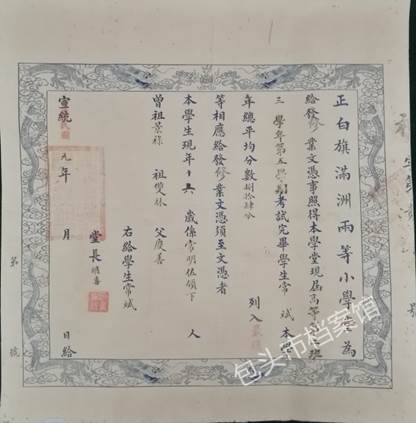 正白旗滿洲兩等小學堂為
給發修業文憑事照得本學堂現屆高等 班
三學年第五學期考試完畢學生常斌本學
年總平均分數捌拾肆分
列入最優
等相應給發修業文憑須至文憑者
本學生現年十六歲係常明佐領下人
曾祖景祿 祖雙林 父慶善
右給學生常斌
堂長
宣統民國元年 月 日給
第 號
包头市档案馆